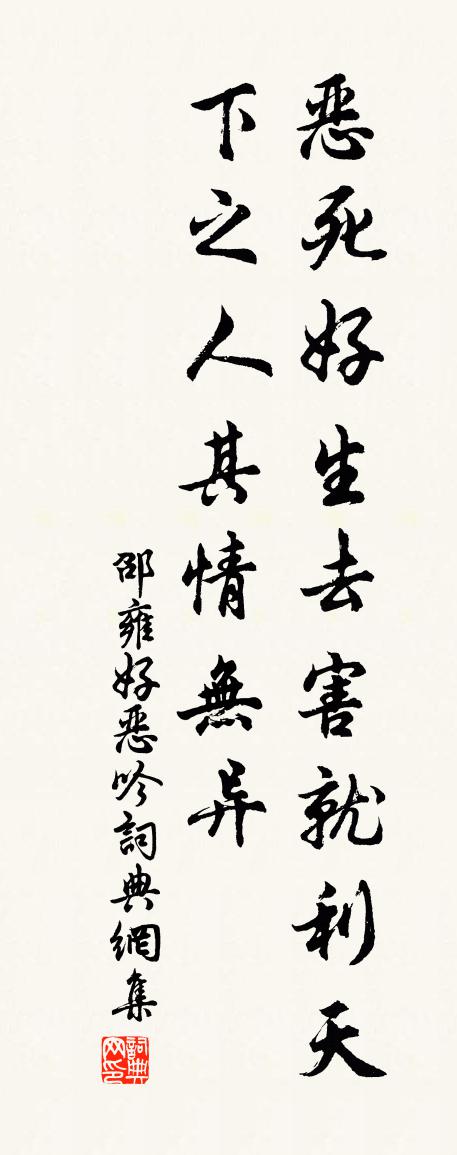 恶死好生去害就利天
下之人其情無异
邵雍好恶吟詞典網集
詞典网印